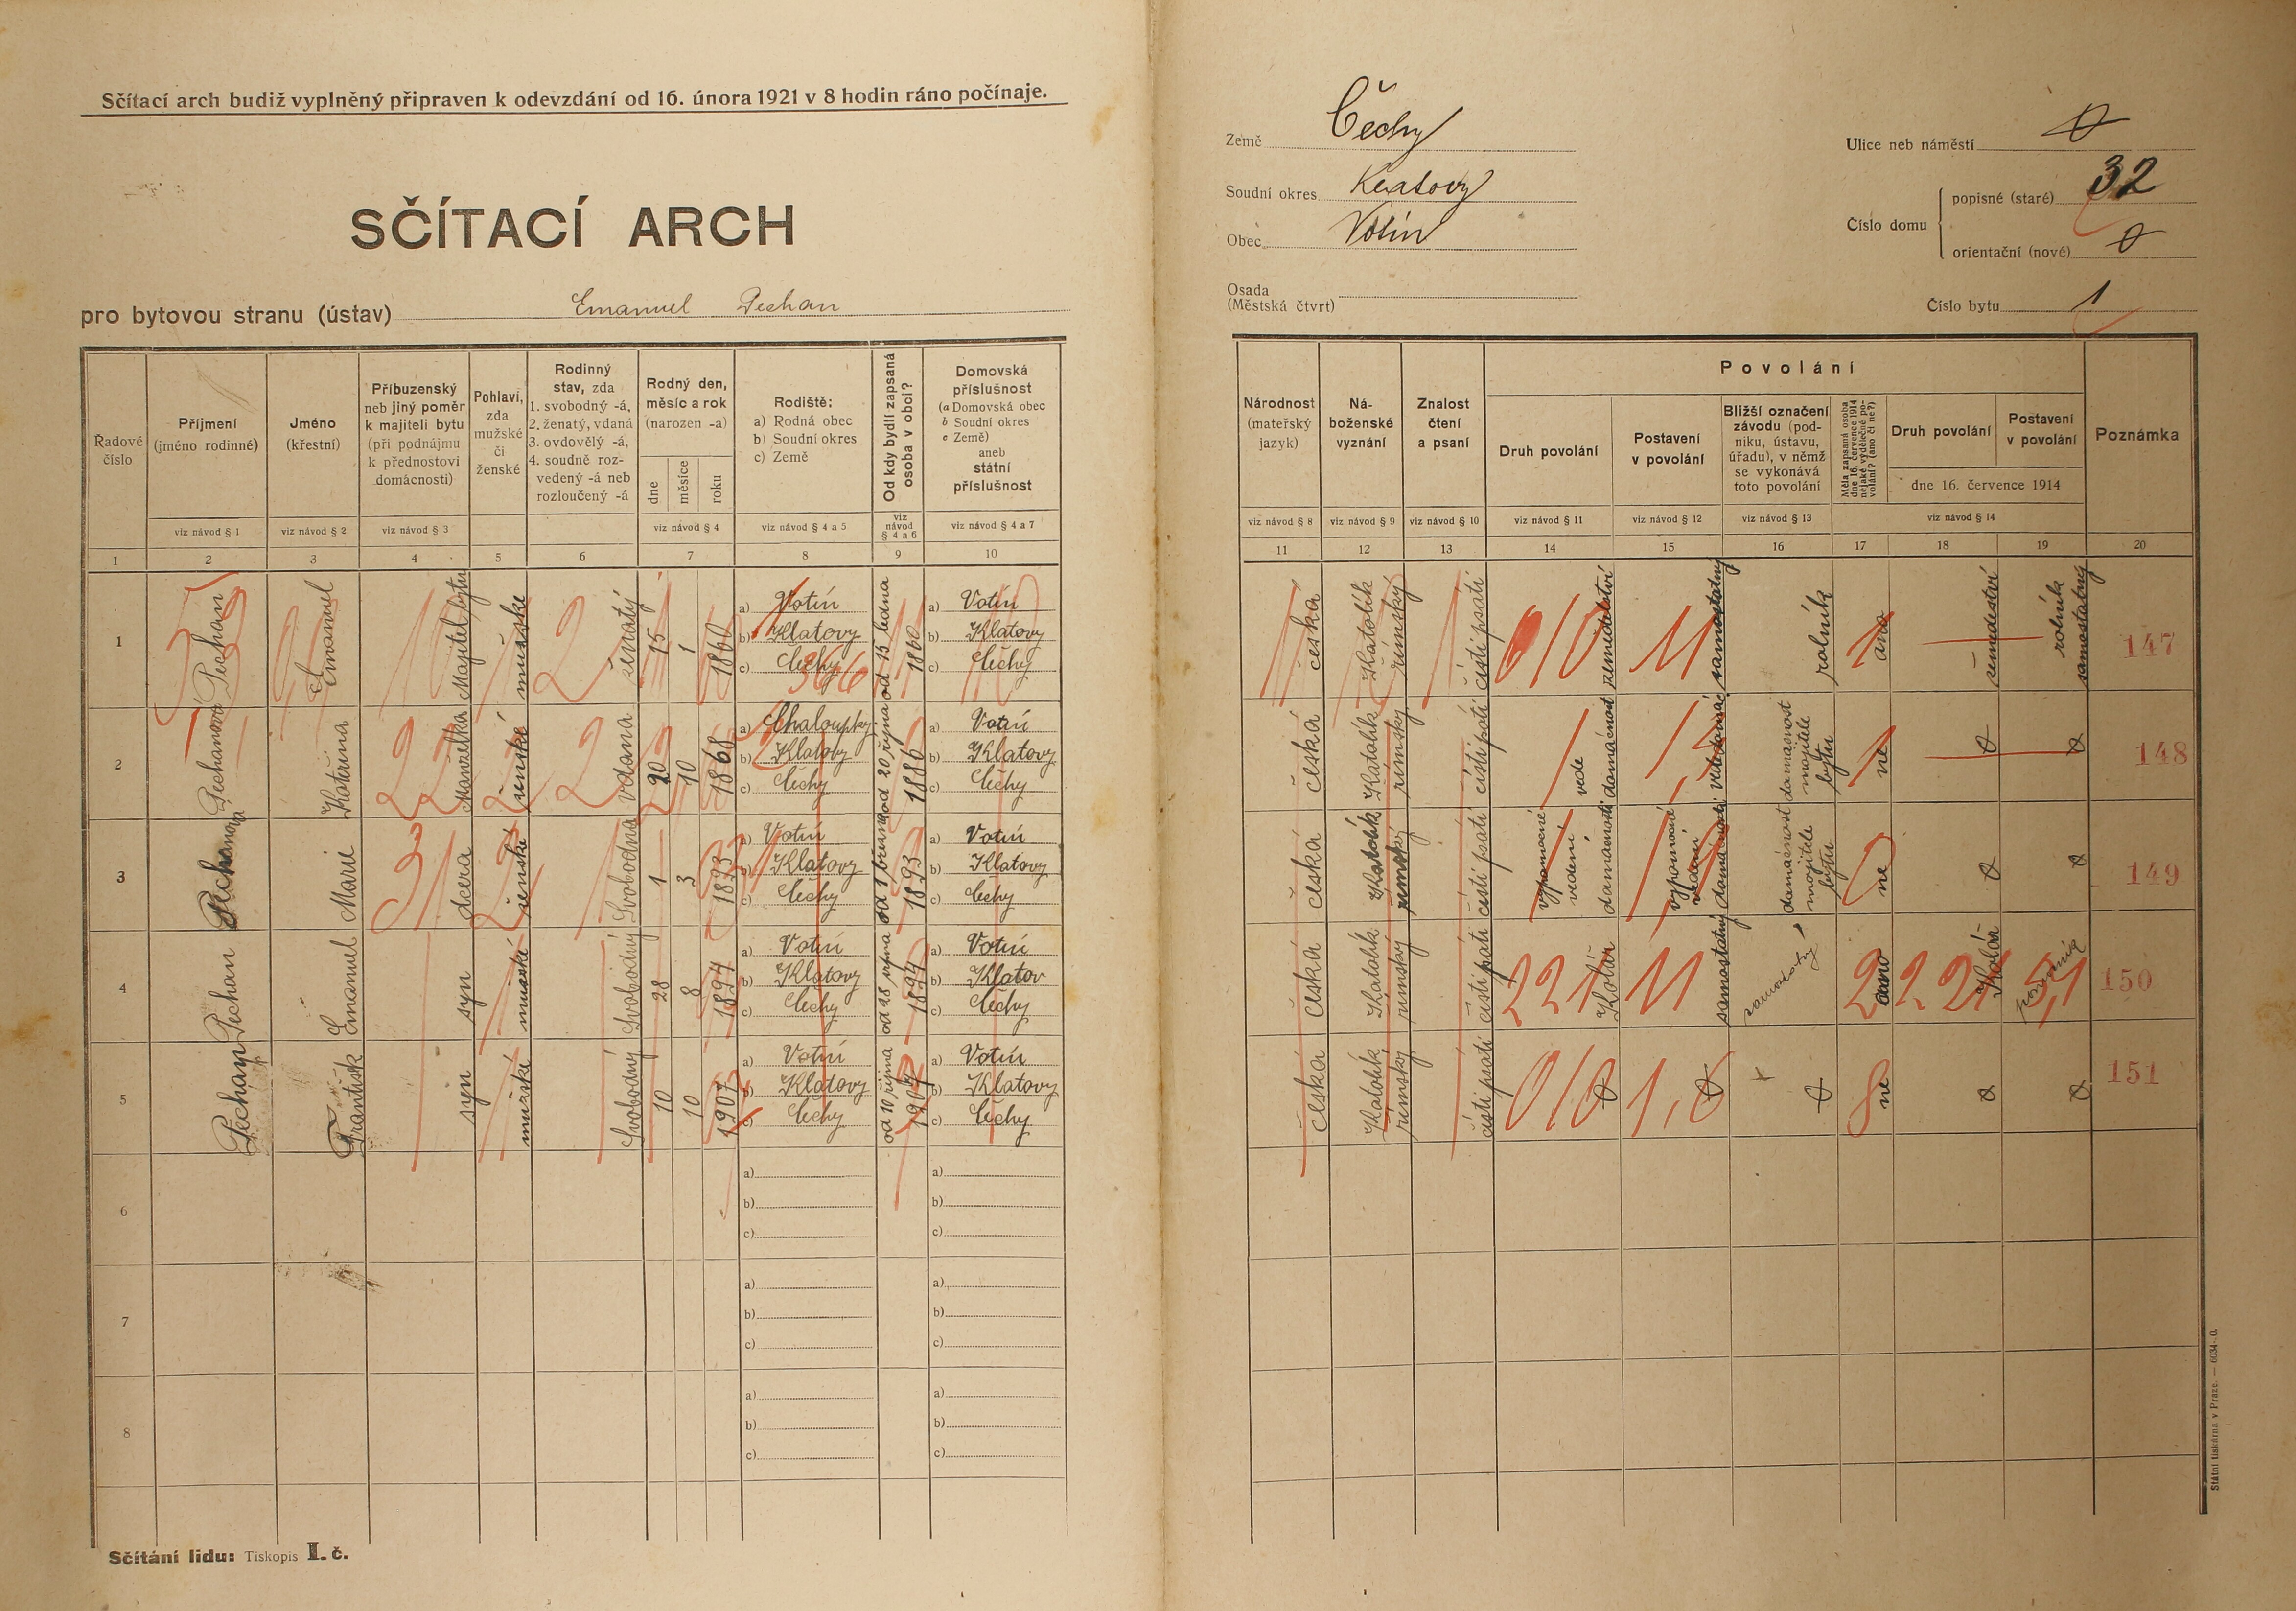 Sčítací arch budiž vyplněný připraven k odevzdání od 16. února 1921 v 8 hodin ráno počínaje.
SČÍTACÍ ARCH
pro bytovou stranu (ústav) Emanuel Pechan
Země Čechy
Soudní okres Klatovy
Obec Votín
Osada
(Městská čtvrt)
Ulice neb náměstí
Číslo domu
popisné (staré) 32
orientační (nové)
Číslo bytu 1
Řadové číslo
Příjmení (jméno rodinné)
viz návod § 1
Jméno (křestní)
viz návod § 2
Příbuzenský neb jiný poměr k majiteli bytu (při podnájmu k přednostovi domácnosti)
viz návod § 3
Pohlaví, zda mužské či ženské
Rodinný stav, zda
1. svobodný -á,
2. ženatý, vdaná
3. ovdovělý -á,
4. soudně rozvedený -á neb rozloučený -á
Rodný den, měsíc a rok (narozen -a)
dne měsíce roku
viz návod § 4
Rodiště:
a) Rodná obec
b) Soudní okres
c) Země
viz návod § 4 a 5
Od kdy bydlí zapsaná osoba v obci?
viz návod § 4 a 6
Domovská příslušnost
(a Domovská obec
b Soudní okres
c Země)
aneb
státní příslušnost
viz návod § 4 a 7
1 2 3 4 5 6 7 8 9 10
1 Pechan Emanuel Majitel bytu mužské ženatý 15 1 1860 a) Votín b) Klatovy c) Čechy od 15 ledna 1860 a) Votín b) Klatovy c) Čechy
2 Pechanová Kateřina Manželka ženské vdaná 20 10 1868 a) Chaloupky b) Klatovy c) Čechy od 20 října 1886 a) Votín b) Klatovy c) Čechy
3 Pechanová Marie dcera ženské Svobodná 1 3 1893 a) Votín b) Klatovy c) Čechy od 1 března 1893 a) Votín b) Klatovy c) Čechy
4 Pechan Emanuel syn mužské Svobodný 28 8 1894 a) Votín b) Klatovy c) Čechy od 28 srpna 1894 a) Votín b) Klatov c) Čechy
5 Pechan František syn mužské Svobodný 10 10 1907 a) Votín b) Klatovy c) Čechy od 10 října 1907 a) Votín b) Klatovy c) Čechy
6 a) b) c) a) b) c)
7 a) b) c) a) b) c)
8 a) b) c) a) b) c)
Sčítání lidu: Tiskopis I. č.
Národnost (mateřský jazyk)
viz návod § 8
Náboženské vyznání
viz návod § 9
Znalost čtení a psaní
viz návod § 10
Povolání
Druh povolání
viz návod § 11
Postavení v povolání
viz návod § 12
Bližší označení závodu (podniku, ústavu, úřadu), v němž se vykonává toto povolání
viz návod § 13
Měla zapsaná osoba dne 16. července 1914 nějaké výdělečné povolání? (ano či ne?)
Druh povolání
Postavení v povolání
dne 16. července 1914
viz návod § 14
Poznámka
11 12 13 14 15 16 17 18 19 20
česka Katolík římský čísti psáti 010 zemědelství 11 samostatný rolník 1 ano semědeství rolník samostatný 147
česká Katolík římsky čísti psáti vede domácnost domácnost majitele bytu 1 ne 148
česká Katolík římský čísti psáti výpomocné vedení domácnosti výpomocné vedení domácnosti domácnost majitele bytu ne 149
česká Katolík římský čísti psáti 221 Kolář 11 samostatný samostatný 2 ano 221 Kolář 150
česká Katolík římský čísti psáti 010 1,6 8 ne 151
Státní tiskárna v Praze. — 6034-0.